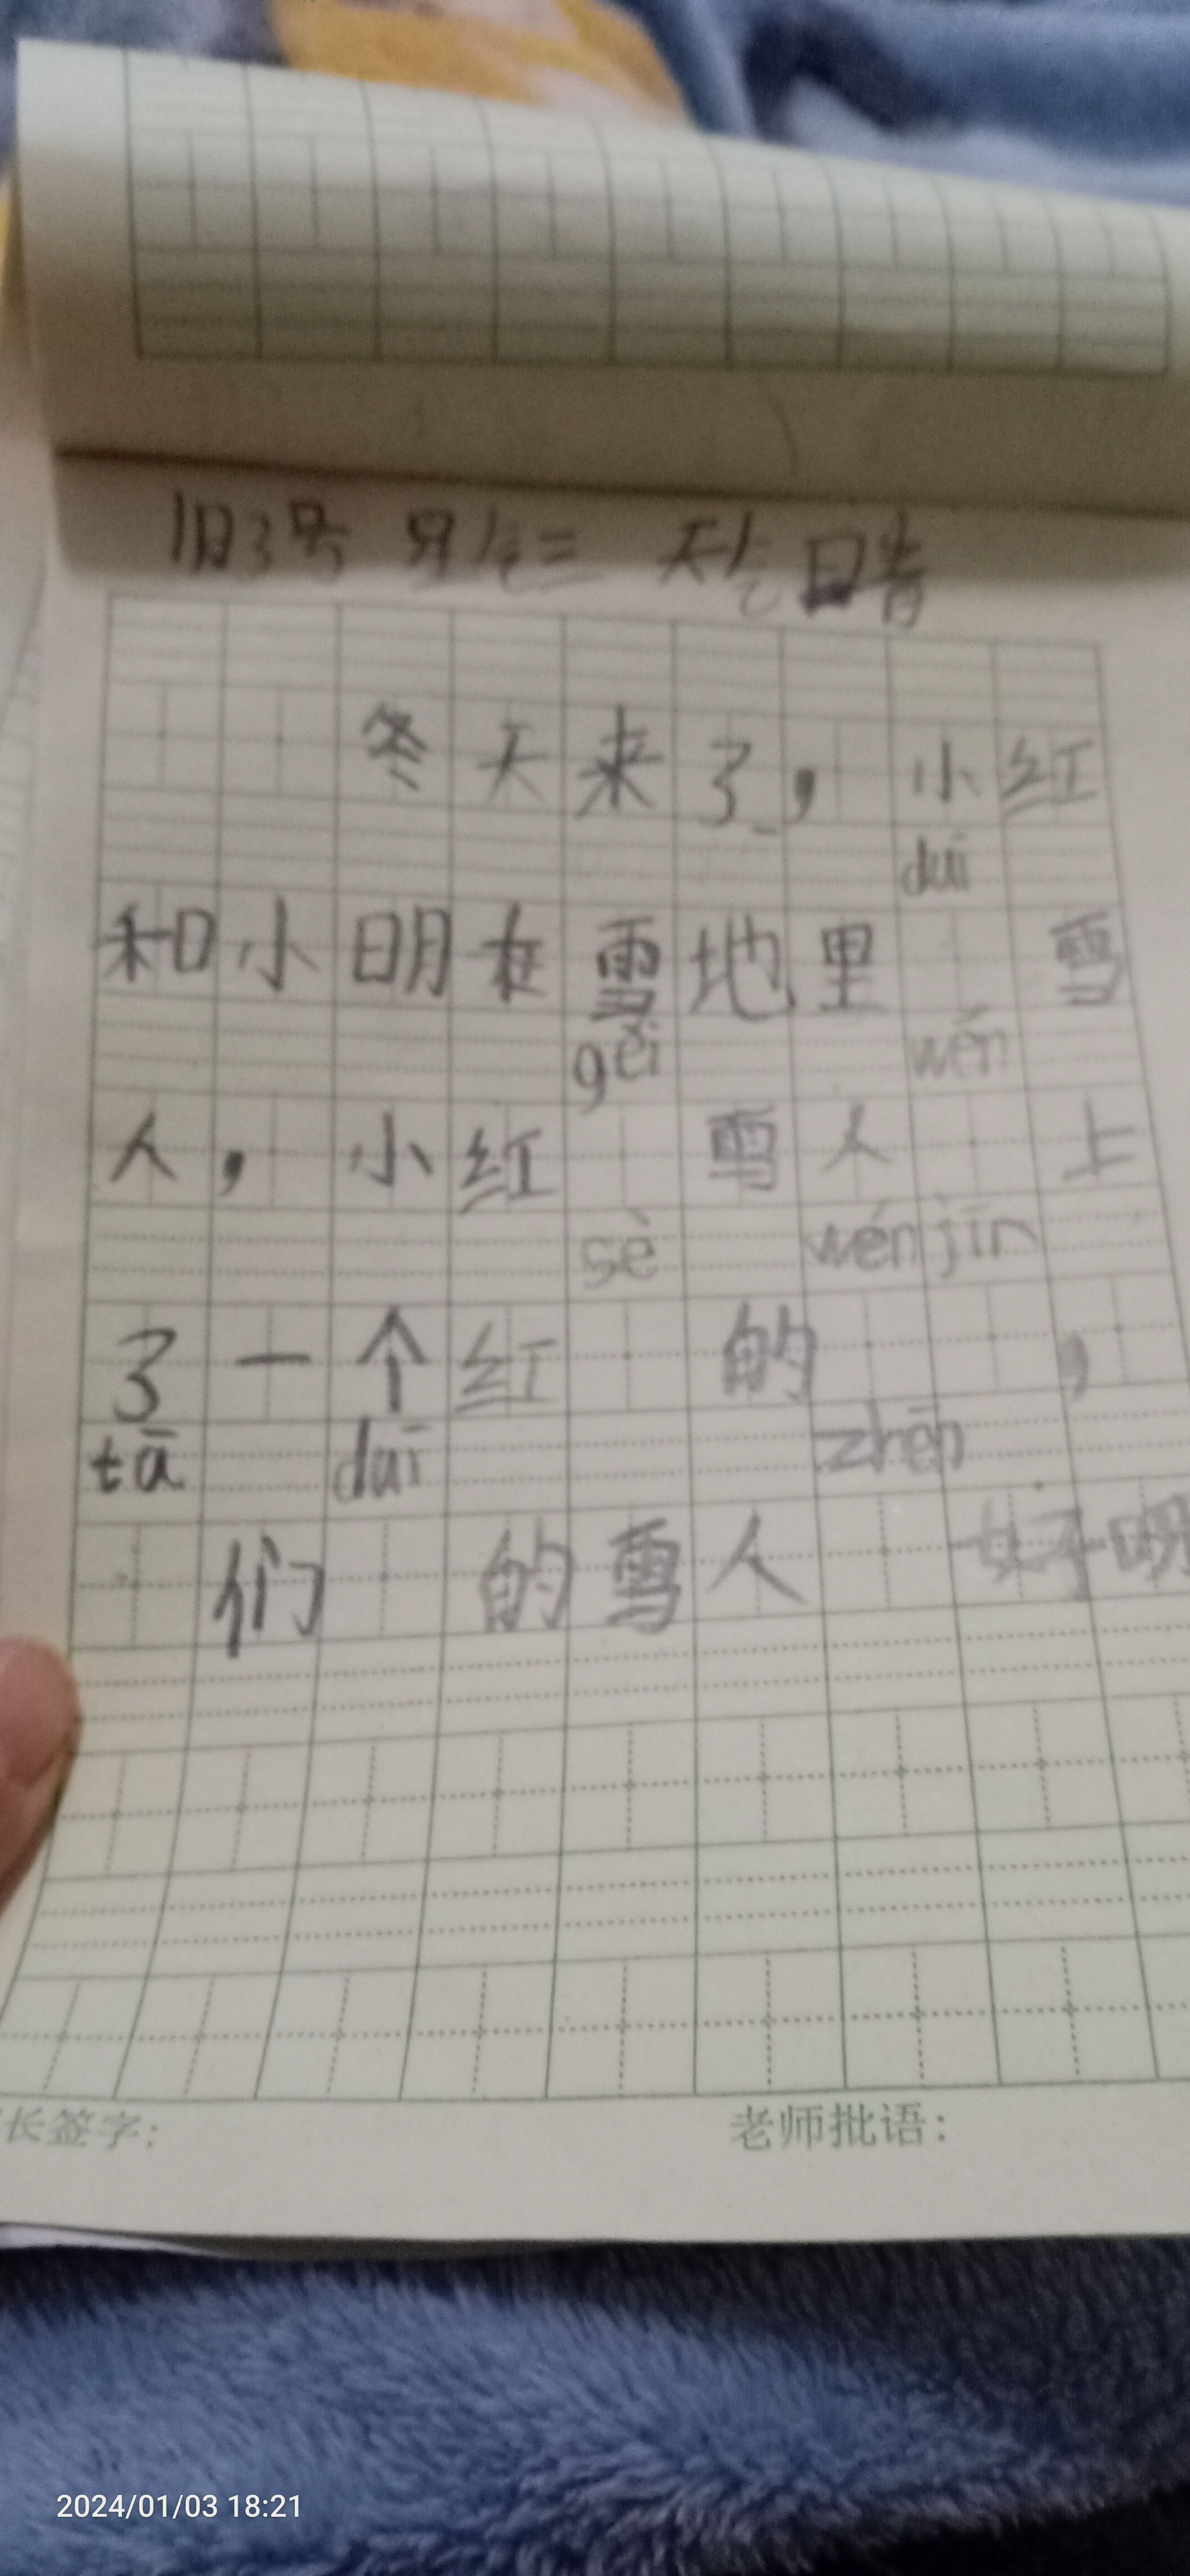 1月3号 星期三 天气晴
冬天来了，小红
duī
和小明在雪地里 雪
gěi wén
人，小红 雪人 上
sè wénjīn
了一个红 的 ，
tā duī zhēn
们 的雪人 好
长签字：
老师批语：
2024/01/03 18:21